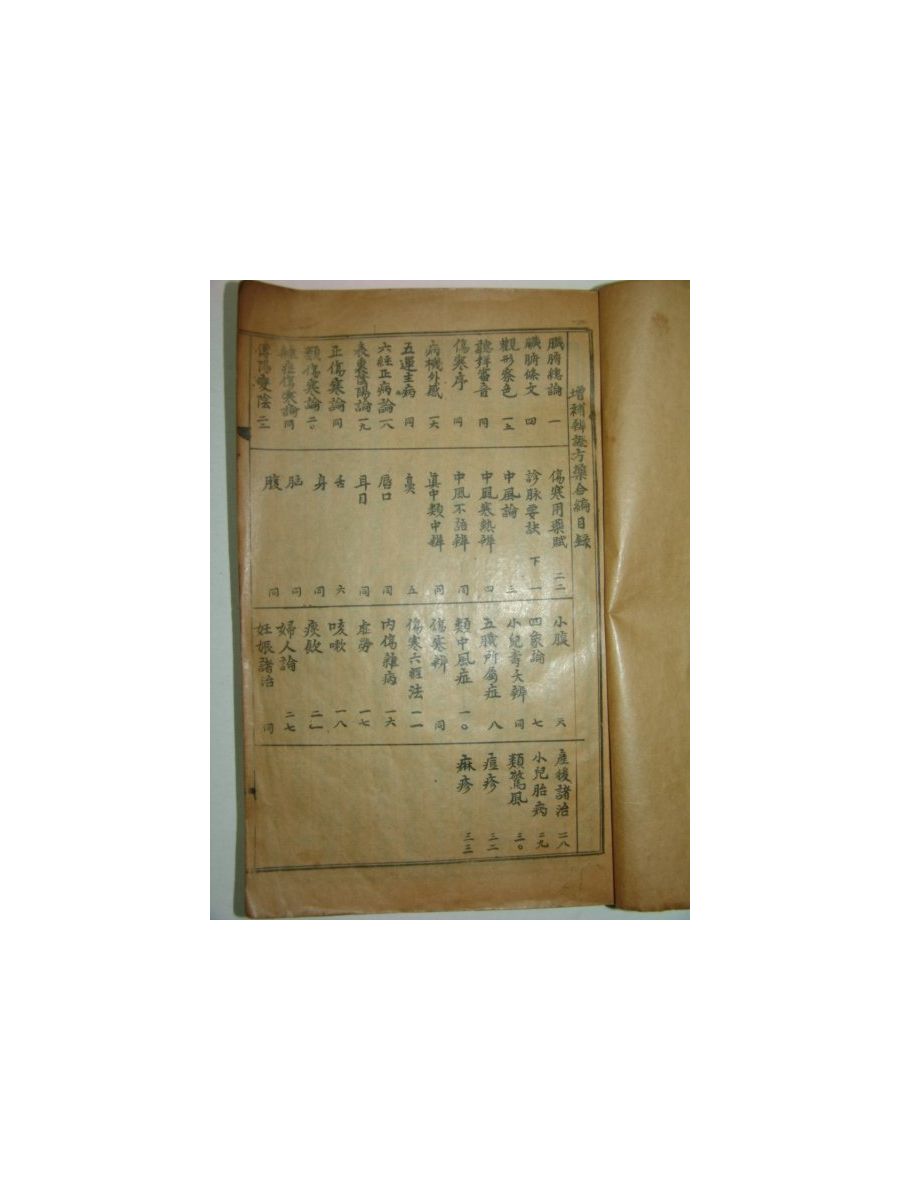 增補辨證方藥合編目錄
臟腑總論 一
臟腑條文 四
觀形察色 一五
聽祥審音 同
傷寒序 同
病機外感 一六
五運主病 同
六經正病論 一八
表裏陰陽論 一九
正傷寒論 同
類傷寒論 二〇
雜症傷寒論 同
傳陽變陰 二二
傷寒用藥賦 二二
診脉要訣 下 一
中風論 三
中風寒熱辨 四
中風不語辨 同
眞中類中辨 同
鼻 五
唇口 同
耳目 同
舌 六
身 同
同
腹 同
小腹 六
四象論 七
小兒壽夭辨 同
五臟所屬症 八
類中風症 一〇
傷寒辨 同
傷寒六經法 一一
內傷雜病 一六
虛勞 一七
咳嗽 一八
痰飮 二一
婦人論 二七
妊娠諸治 同
產後諸治 二八
小兒胎病 二九
類驚風 三〇
痘疹 三二
麻疹 三三